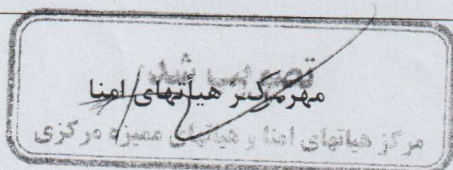 تصویب شد
مهر مرکز هیأتهای امنا
مرکز هیاتهای امنا و هیاتهای ممیزه مرکزی